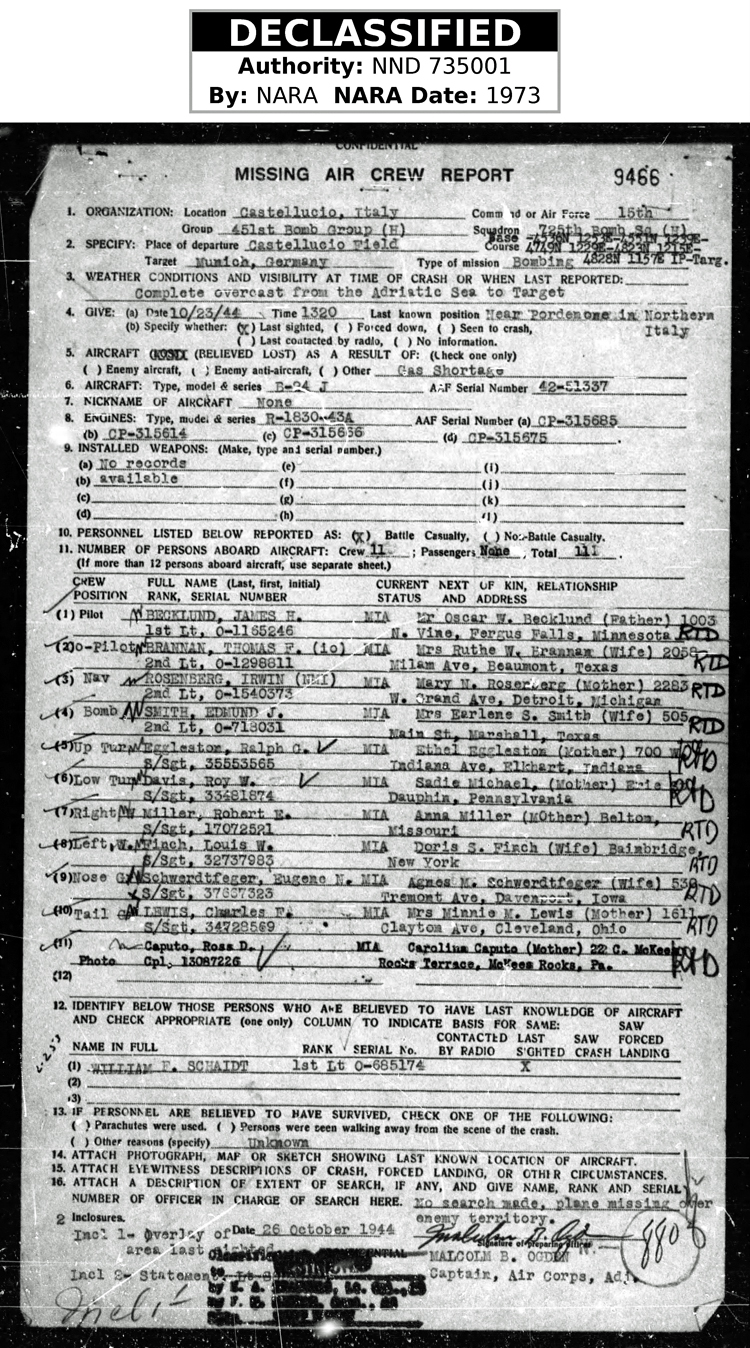 DECLASSIFIED
Authority: NND 735001
By: NARA NARA Date: 1973
CONFIDENTIAL
MISSING AIR CREW REPORT 9466
1. ORGANIZATION: Location Castellucio, Italy Command or Air Force 15th
Group 451st Bomb Group (H) Squadron 725th Bomb Sq (H)
2. SPECIFY: Place of departure Castellucio Field Course 4749N 1229E-4823N 1215E-
Target Munich, Germany Type of mission Bombing 4828N 1157E IP-Targ.
3. WEATHER CONDITIONS AND VISIBILITY AT TIME OF CRASH OR WHEN LAST REPORTED:
Complete overcast from the Adriatic Sea to Target
4. GIVE: (a) Date 10/23/44 Time 1320 Last known position Near Pordenone in Northern
(b) Specify whether: (X) Last sighted, ( ) Forced down, ( ) Seen to crash, Italy
( ) Last contacted by radio, ( ) No information.
5. AIRCRAFT (BELIEVED LOST) AS A RESULT OF: (Check one only)
( ) Enemy aircraft, ( ) Enemy anti-aircraft, ( ) Other Gas Shortage
6. AIRCRAFT: Type, model & series B-24 J AAF Serial Number 42-51337
7. NICKNAME OF AIRCRAFT None
8. ENGINES: Type, model & series R-1830-43A AAF Serial Number (a) CP-315685
(b) CP-315614 (c) CP-315656 (d) CP-315675
9. INSTALLED WEAPONS: (Make, type and serial number.)
(a) No records (e) (i)
(b) available (f) (j)
(c) (g) (k)
(d) (h) (l)
10. PERSONNEL LISTED BELOW REPORTED AS: (X) Battle Casualty, ( ) Non-Battle Casualty.
11. NUMBER OF PERSONS ABOARD AIRCRAFT: Crew 11 ; Passengers None , Total 11
(If more than 12 persons aboard aircraft, use separate sheet.)
CREW FULL NAME (Last, first, initial) CURRENT NEXT OF KIN, RELATIONSHIP
POSITION RANK, SERIAL NUMBER STATUS AND ADDRESS
(1) Pilot BECKLUND, JAMES H. MIA Mr Oscar W. Becklund (Father) 1003
1st Lt, O-1165246 N. Vine, Fergus Falls, Minnesota RTD
(2) Co-Pilot BRANNAN, THOMAS F. (io) MIA Mrs Ruthe W. Brannan (Wife) 2058
2nd Lt, O-1298811 Milam Ave, Beaumont, Texas RTD
(3) Nav ROSENBERG, IRWIN (NMI) MIA Mary N. Rosenberg (Mother) 2283
2nd Lt, O-1540373 W. Grand Ave, Detroit, Michigan RTD
(4) Bomb SMITH, EDMUND J. MIA Mrs Earlene S. Smith (Wife) 505
2nd Lt, O-713031 Main St, Marshall, Texas RTD
(5) Up Tur Eggleston, Ralph G. MIA Ethel Eggleston (Mother) 700 W
S/Sgt, 35553565 Indiana Ave, Elkhart, Indiana RTD
(6) Low Tur Davis, Roy W. MIA Sadie Michael, (Mother) Erie
S/Sgt, 33481874 Dauphin, Pennsylvania RTD
(7) Right W Miller, Robert E. MIA Anna Miller (MOther) Belton,
S/Sgt, 17072521 Missouri RTD
(8) Left W. Finch, Louis W. MIA Doris S. Finch (Wife) Bainbridge,
S/Sgt, 32737983 New York RTD
(9) Nose G Schwerdtfeger, Eugene N. MIA Agnes M. Schwerdtfeger (Wife) 538
S/Sgt, 37667323 Tremont Ave, Davenport, Iowa RTD
(10) Tail G LEWIS, Charles F. MIA Mrs Minnie M. Lewis (Mother) 1611
S/Sgt, 34728569 Clayton Ave, Cleveland, Ohio RTD
(11) Caputo, Ross D. MIA Carolina Caputo (Mother) 22 C. McKees
Photo Cpl, 13087226 Rocks Terrace, McKees Rocks, Pa. RTD
(12)
12. IDENTIFY BELOW THOSE PERSONS WHO ARE BELIEVED TO HAVE LAST KNOWLEDGE OF AIRCRAFT
AND CHECK APPROPRIATE (one only) COLUMN TO INDICATE BASIS FOR SAME: SAW
CONTACTED LAST SAW FORCED
NAME IN FULL RANK SERIAL No. BY RADIO SIGHTED CRASH LANDING
(1) WILLIAM F. SCHAIDT 1st Lt O-685174 X
(2)
(3)
13. IF PERSONNEL ARE BELIEVED TO HAVE SURVIVED, CHECK ONE OF THE FOLLOWING:
( ) Parachutes were used. ( ) Persons were seen walking away from the scene of the crash.
( ) Other reasons (specify) Unknown
14. ATTACH PHOTOGRAPH, MAP OR SKETCH SHOWING LAST KNOWN LOCATION OF AIRCRAFT.
15. ATTACH EYEWITNESS DESCRIPTIONS OF CRASH, FORCED LANDING, OR OTHER CIRCUMSTANCES.
16. ATTACH A DESCRIPTION OF EXTENT OF SEARCH, IF ANY, AND GIVE NAME, RANK AND SERIAL
NUMBER OF OFFICER IN CHARGE OF SEARCH HERE. No search made, plane missing over
2 Inclosures. enemy territory.
Incl 1- Overlay of Date 26 October 1944
Signature of preparing officer
area last sighted MALCOLM B. OGDEN
Incl 2- Statement Captain, Air Corps, Adj.
Incl 1